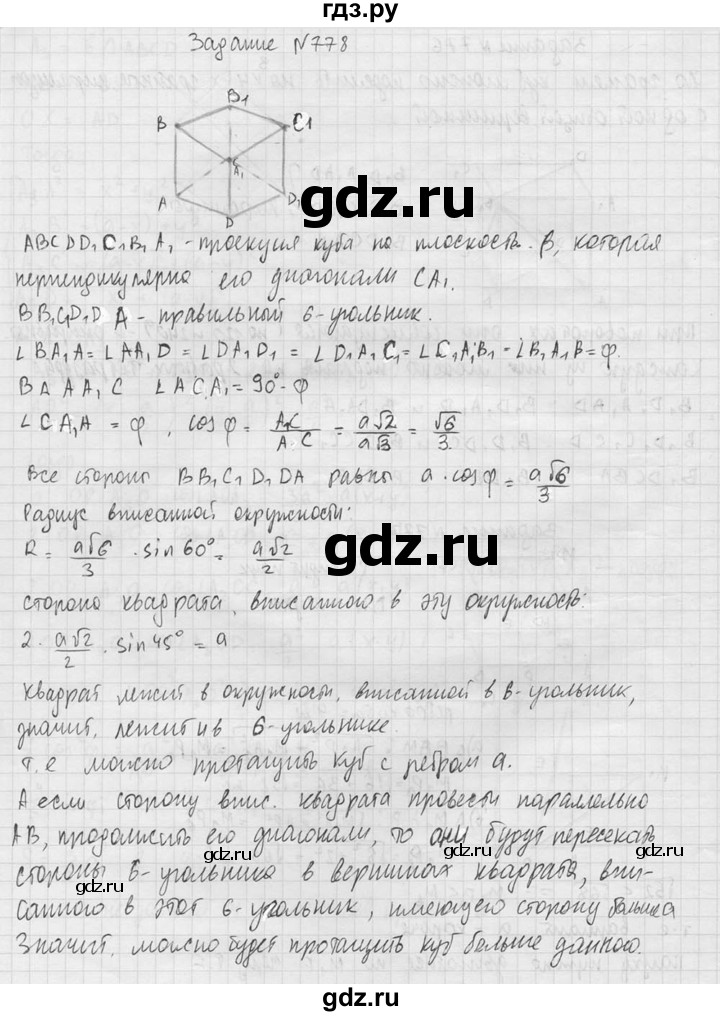 гдз.ру
Задание №778
B1
B
C1
A1
A
D1
D
gdz.ru
ABCDD1C1B1A1 - проекция куба по плоскость β, которая
перпендикулярна его диагонали CA1.
BB1C1D1D A - правильный 6-угольник.
∠BA1A = ∠AA1D = ∠DA1D1 = ∠D1A1C1 = ∠C1A1B1 - ∠B1A1B = φ.
В Δ AA1C ∠ACA1 = 90°- φ
∠CA1A = φ, cos φ = A1C/A1C = a√2/a√3 = √6/3
gdz.ru
Все стороны BB1C1D1DA равны a · cos φ = a√6/3
Радиус вписанной окружности:
R = a√6/3 · sin 60° = a√2/2
gdz.ru
сторона квадрата, вписанного в эту окружность:
2 · a√2/2 · sin 45° = a
Квадрат лежит в окружности, вписанной в 6-угольник,
значит, лежит и в 6-угольнике.
gdz.ru
т.е можно протащить куб с ребром a.
А если сторону впис. квадрата провести параллельно
AB, продолжить его диагонали, то они будут пересекать
gdz.ru gdz.ru
стороны 6-угольника в вершинах квадрата, впи-
санного в этот 6-угольник, имеющего сторону больше a
Значит, можно будет протащить куб больше данного.
gdz.ru
gdz.ru